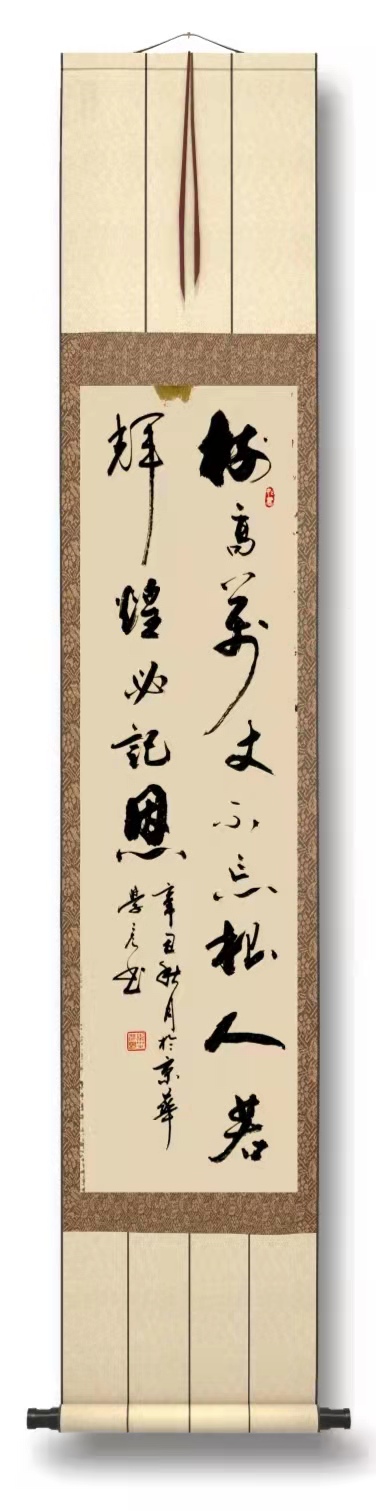 树高萬丈不忘根人若
輝煌必記恩
辛丑秋月於京華
學彥书